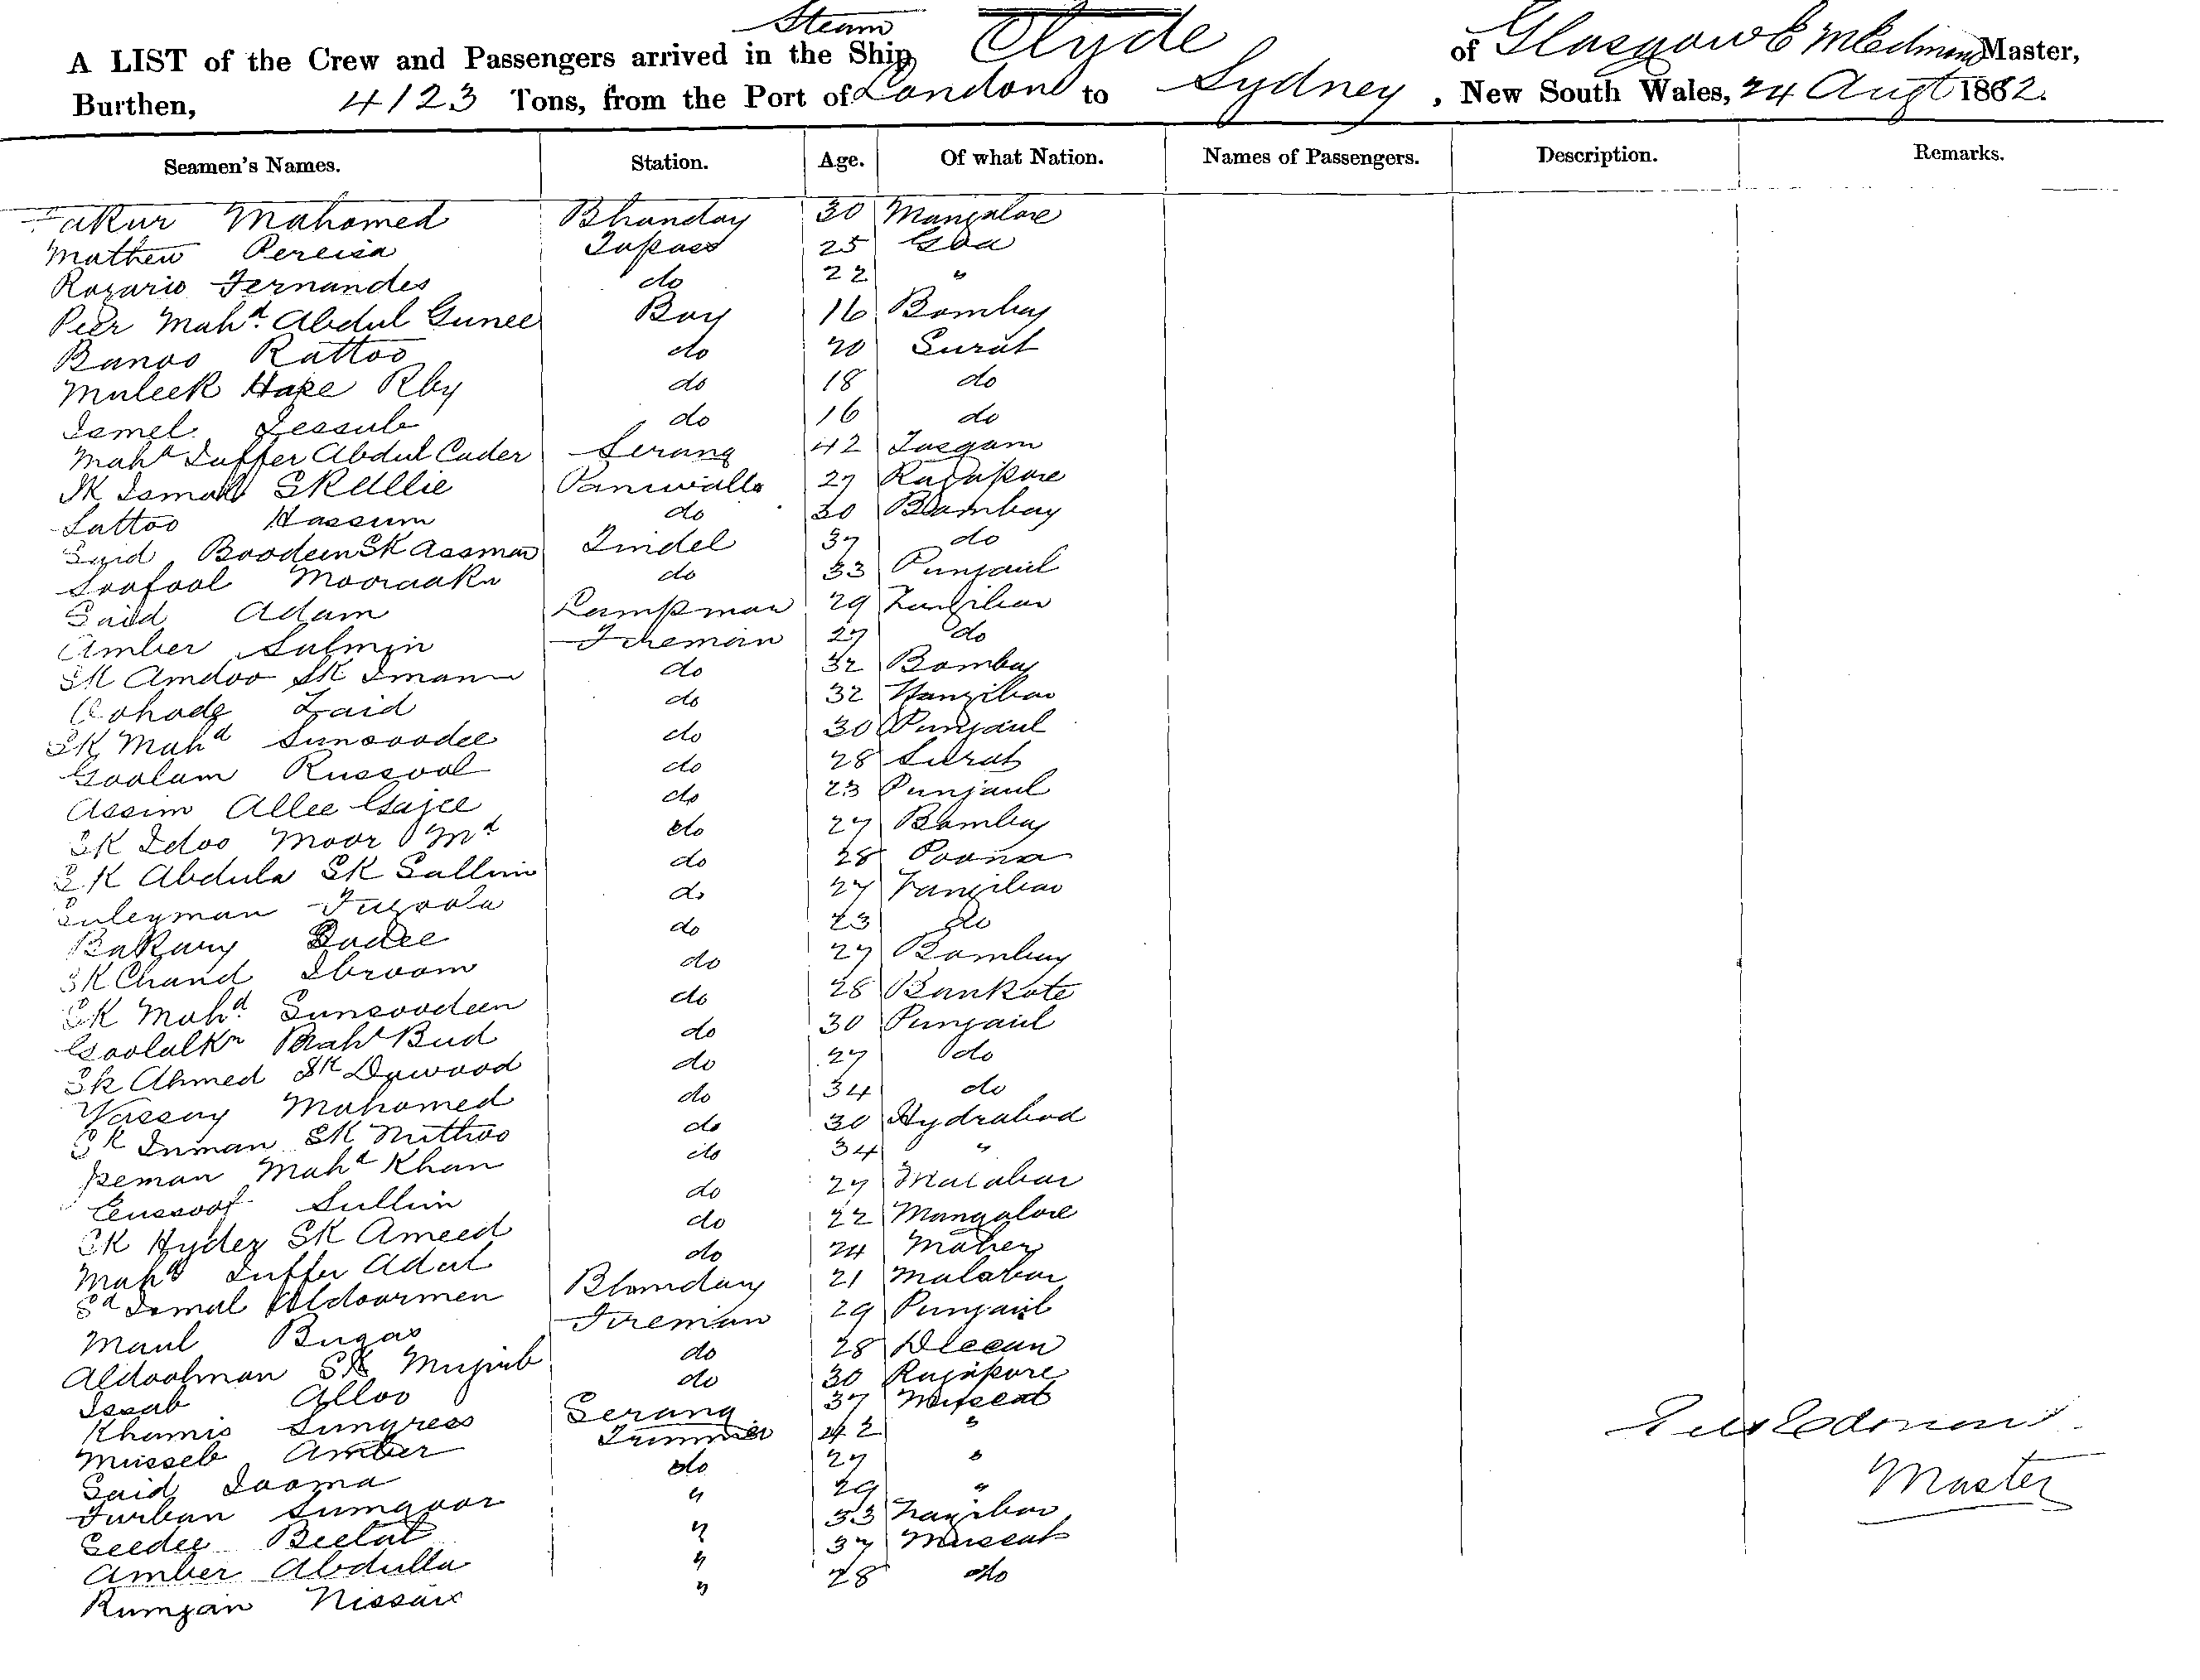 A LIST of the Crew and Passengers arrived in the Steam Ship Clyde of Glasgow E Master,
Burthen, 4123 Tons, from the Port of London to Sydney, New South Wales, 24 Augt 1882.
Seamen's Names. Station. Age. Of what Nation. Names of Passengers. Description. Remarks.
Fakur Mahomed Bhanday 30 Mangalore
Mathew Pereira Topass 25 Goa
Rozario Fernandes do 22 "
Peer Mahd. Abdul Gunee Boy 16 Bombay
Banoo Rattoo do 20 Surat
Muleek Rby do 18 do
Ismel Jessub do 16 do
Mahd Juffer Abdul Cader Serang 42
SK Ismal SK Ullie Paniwalla 27 Rajapore
Lattoo Hassum do 30 Bombay
Said Boodeen SK Assman Tindel 37 do
Mooraakn do 33 Punjaul
Said Adam Lampman 29 Zanzibar
Amber Sulmin Fireman 27 do
SK Amdoo SK Imann do 32 Bombay
Zaid do 32 Zanzibar
SK Mahd Sunsoodee do 30 Punjaul
Goolam Russool do 28 Surat
Assim Allee Gajee do 23 Punjaul
SK Idoo Moor Md do 27 Bombay
SK Abdula SK Sallim do 28 Poona
Suleyman do 27 Zanzibar
Bakary Dadee do 23 do
SK Chand Ibroom do 27 Bombay
SK Mahd. Sunsoodeen do 28 Bankote
Goolalkn Mahd Bud do 30 Punjaul
Sk Ahmed SK Dawood do 27 do
Vassay Mahomed do 34 do
SK Inman SK Mithoo do 30 Hydrabad
Jeman Mahd Khan do 34 "
Eussoof Sullim do 27 Malabar
SK Hyder SK Ameed do 22 Mangalore
Mahd Juffer Adul do 24 Mahey
Sd Ismal Abdoormen Bhanday 21 Malabar
Maul Bugas Fireman 29 Punjaul
Aldoolman SK Mujub do 28 Deccan
Issub Alloo do 30 Rajapore
Khamis Sungress Serang 37 Muscat
Musseb Amber Trimmer 42 "
Said Jooma do 27 "
Furban Sumgoor " 29 "
Seedee Beelal " 33 Zanzibar
Amber Abdulla " 37 Muscat
Rumjan Nissau " 28 do
Master